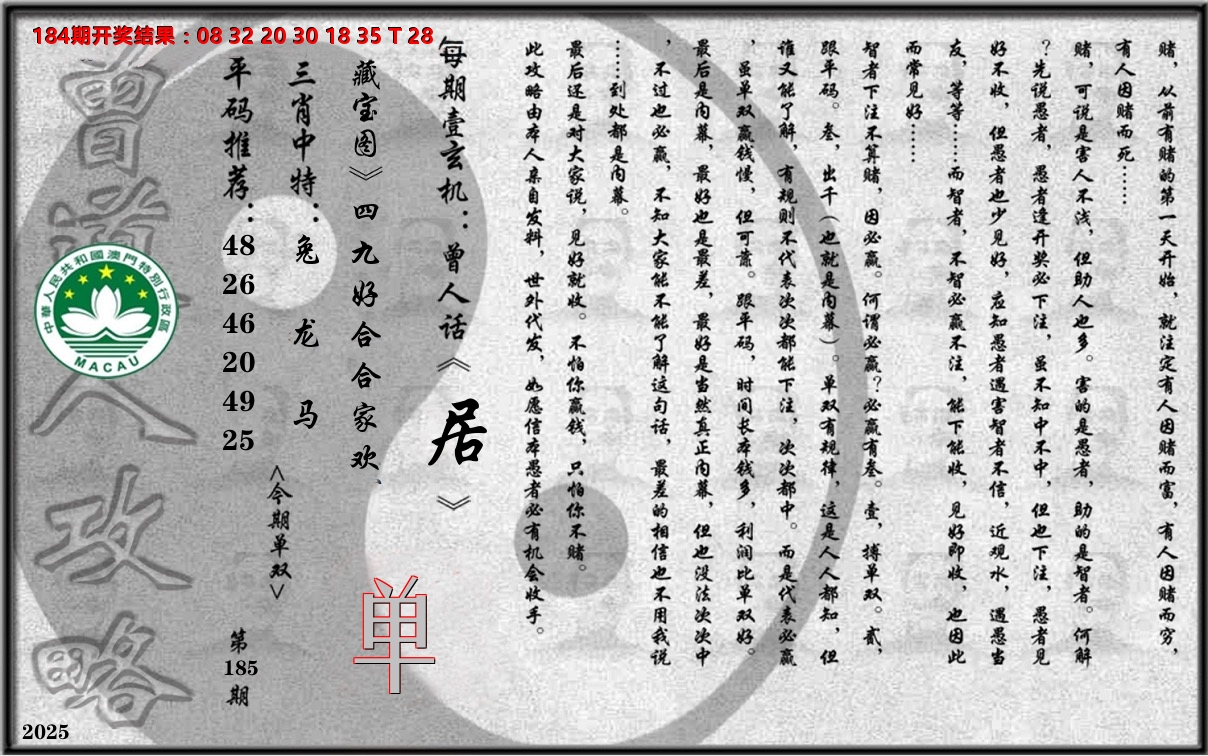 184期开奖结果：08 32 20 30 18 35 T 28
赌，从前有赌的第一天开始，就注定有人因赌而富，有人因赌而穷，
有人因赌而死……
赌，可说是害人不浅，但助人也多。害的是愚者，助的是智者。何解
？先说愚者，愚者逢开奖必下注，虽不知中不中，但也下注，愚者见
好不收，但愚者也少见好，应知愚者遇害智者不信，近观水，遇愚当
友，等等……而智者，不智必赢不注，能下能收，见好即收，也因此
而常见好……
智者下注不算赌，因必赢。何谓必赢？必赢有叁。壹，搏单双。贰，
跟平码。叁，出千（也就是内幕）。单双有规律，这是人人都知，但
谁又能了解，有规则不代表次次都能下注，次次都中。而是代表必赢
，虽单双赢钱慢，但可靠。跟平码，时间长本钱多，利润比单双好。
最后是内幕，最好也是最差，最好是当然真正内幕，但也没法次次中
，不过也必赢，不知大家能不能了解这句话，最差的相信也不用我说
……到处都是内幕。
最后还是对大家说，见好就收。不怕你赢钱，只怕你不赌。
此攻略由本人亲自发料，世外代发，如愿信本愚者必有机会收手。
每期壹玄机：曾人话《居》
藏宝图》四九好合合家欢、
单
三肖中特：兔 龙 马
<今期单双>
平码推荐：48 26 46 20 49 25
第185期
曾道人攻略
中華人民共和國澳門特別行政區
MACAU
2025